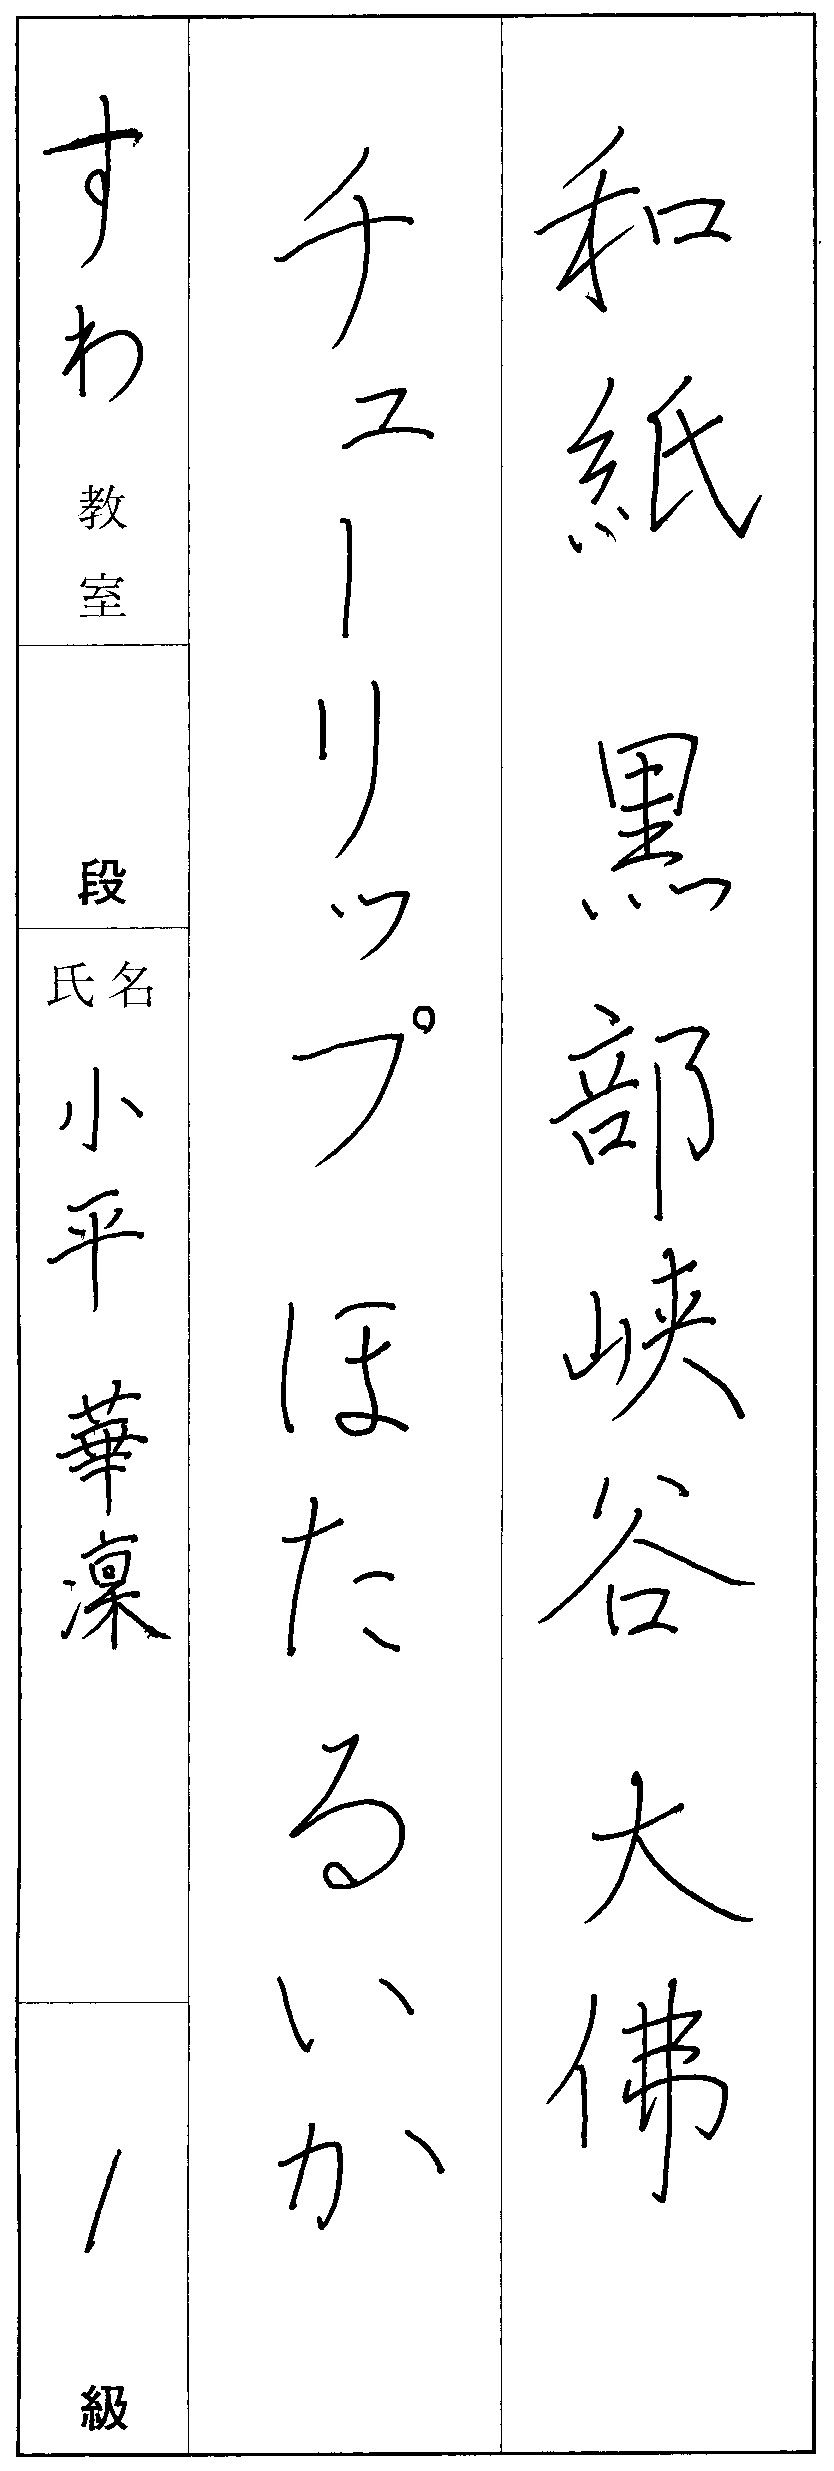 和紙 黒部峡谷 大佛
チューリップ ほたるいか
すわ 教室
段
氏名 小平 華凜
1 級